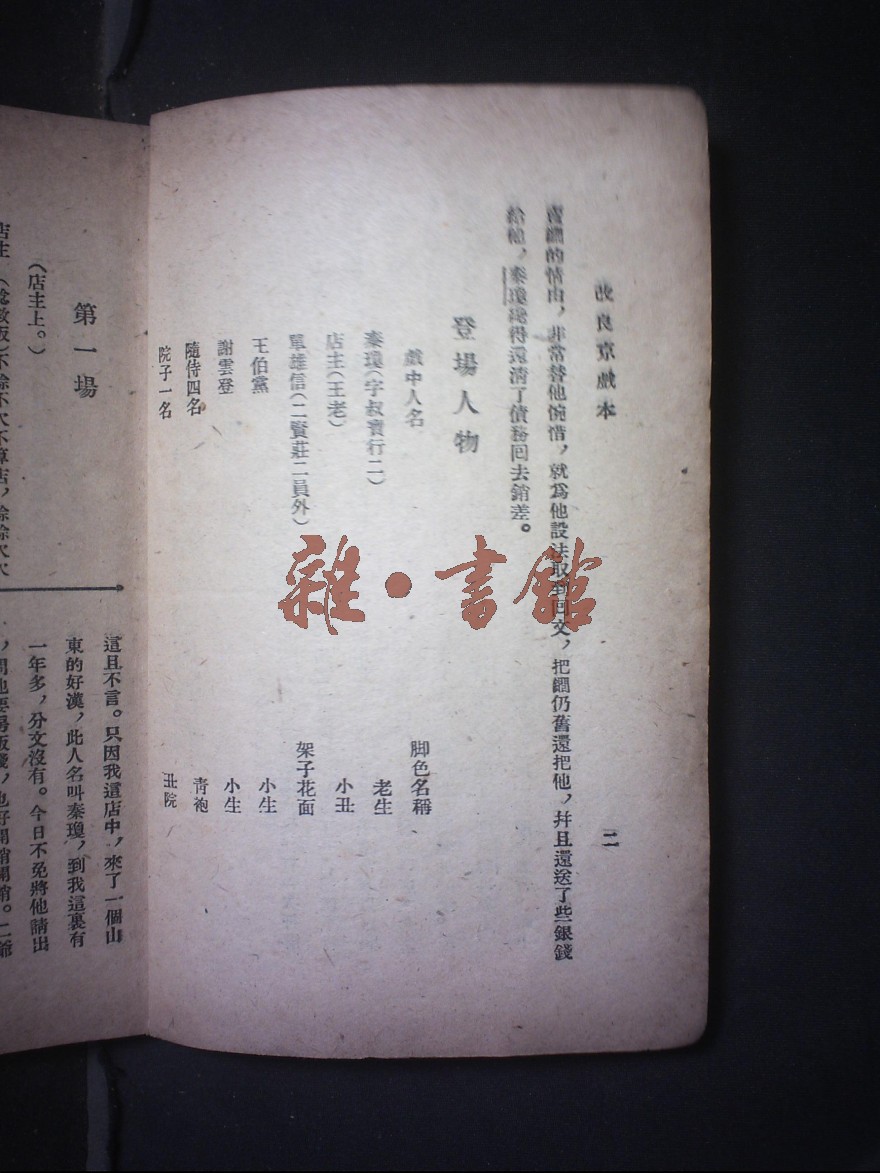 改良京戲本
二
賣鐗的情由，非常替他惋惜，就爲他設法取到回文，把鐗仍舊還把他，幷且還送了些銀錢
給他，秦瓊纔得還清了債務回去銷差。
登場人物
戲中人名 脚色名稱
秦瓊（字叔寶行二） 老生
店主（王老） 小丑
單雄信（二賢莊二員外） 架子花面
王伯黨 小生
謝雲登 小生
隨侍四名 青袍
院子一名 丑院
雜·書館
第一場
（店主上。）
店主 （念數板）不賒不欠不算店，賒賒欠欠
這且不言。只因我這店中，來了一個山
東的好漢，此人名叫秦瓊，到我這裏有
一年多，分文沒有。今日不免將他請出
，問他要房飯錢，也好開銷開銷。二爺